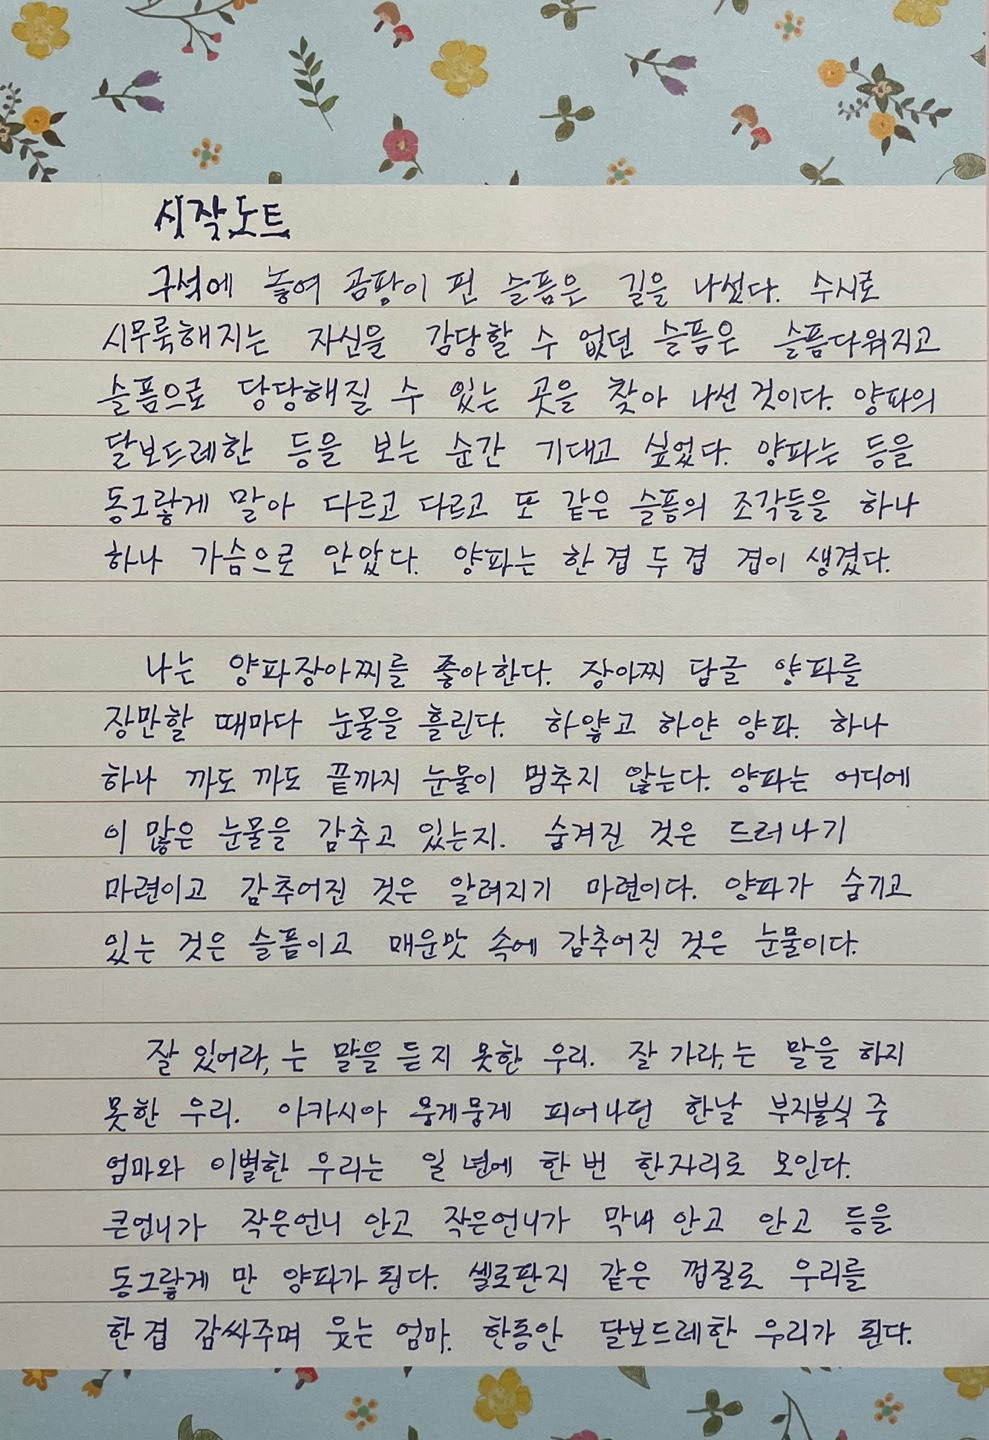 시작노트
구석에 놓여 곰팡이 핀 슬픔은 길을 나섰다. 수시로
시무룩해지는 자신을 감당할 수 없던 슬픔은 슬픔다워지고
슬픔으로 당당해질 수 있는 곳을 찾아 나선 것이다. 양파의
달보드레한 등을 보는 순간 기대고 싶었다. 양파는 등을
동그랗게 말아 다르고 다르고 또 같은 슬픔의 조각들을 하나
하나 가슴으로 안았다. 양파는 한 겹 두 겹 겹이 생겼다.
나는 양파장아찌를 좋아한다. 장아찌 담글 양파를
장만할 때마다 눈물을 흘린다. 하얗고 하얀 양파. 하나
하나 까도 까도 끝까지 눈물이 멈추지 않는다. 양파는 어디에
이 많은 눈물을 감추고 있는지. 숨겨진 것은 드러나기
마련이고 감추어진 것은 알려지기 마련이다. 양파가 숨기고
있는 것은 슬픔이고 매운맛 속에 감추어진 것은 눈물이다.
잘 있어라, 는 말을 듣지 못한 우리. 잘 가라, 는 말을 하지
못한 우리. 아카시아 뭉게뭉게 피어나던 한날 부지불식 중
엄마와 이별한 우리는 일 년에 한 번 한자리로 모인다.
큰언니가 작은언니 안고 작은언니가 막내 안고 안고 등을
동그랗게 만 양파가 된다. 셀로판지 같은 껍질로 우리를
한 겹 감싸주며 웃는 엄마. 한동안 달보드레한 우리가 된다.